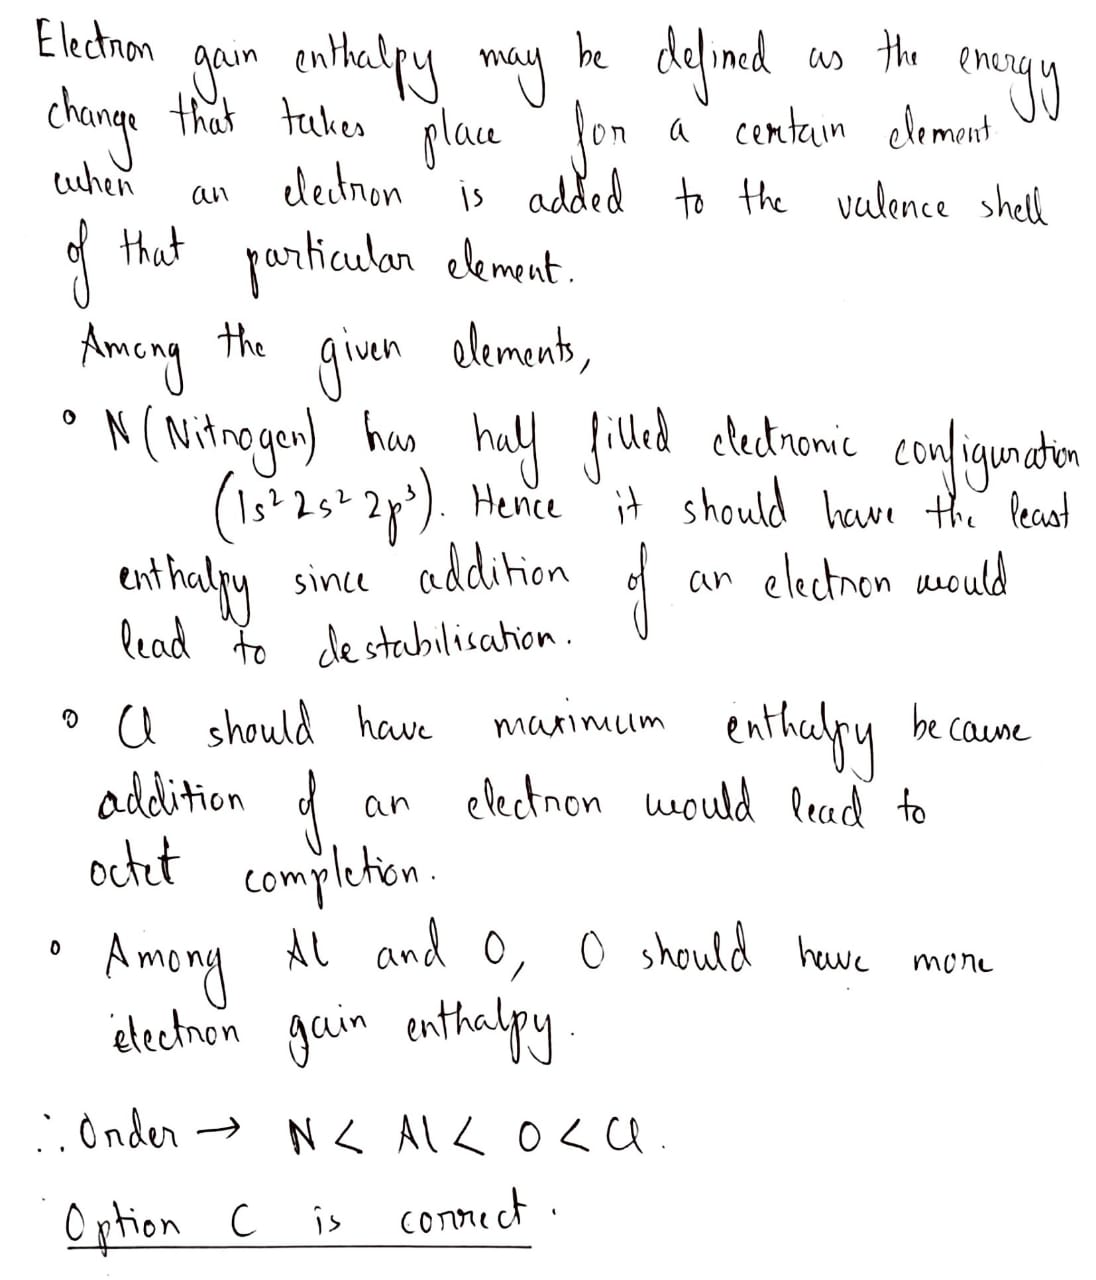 Electron gain enthalpy may be defined as the energy
change that takes place for a certain element
when an electron is added to the valence shell
of that particular element.
Among the given elements,
° N (Nitrogen) has half filled electronic configuration
(1s² 2s² 2p³). Hence it should have the least
enthalpy since addition of an electron would
lead to destabilisation.
° Cl should have maximum enthalpy because
addition of an electron would lead to
octet completion.
° Among Al and O, O should have more
electron gain enthalpy.
∴ Order → N < Al < O < Cl.
Option C is correct.